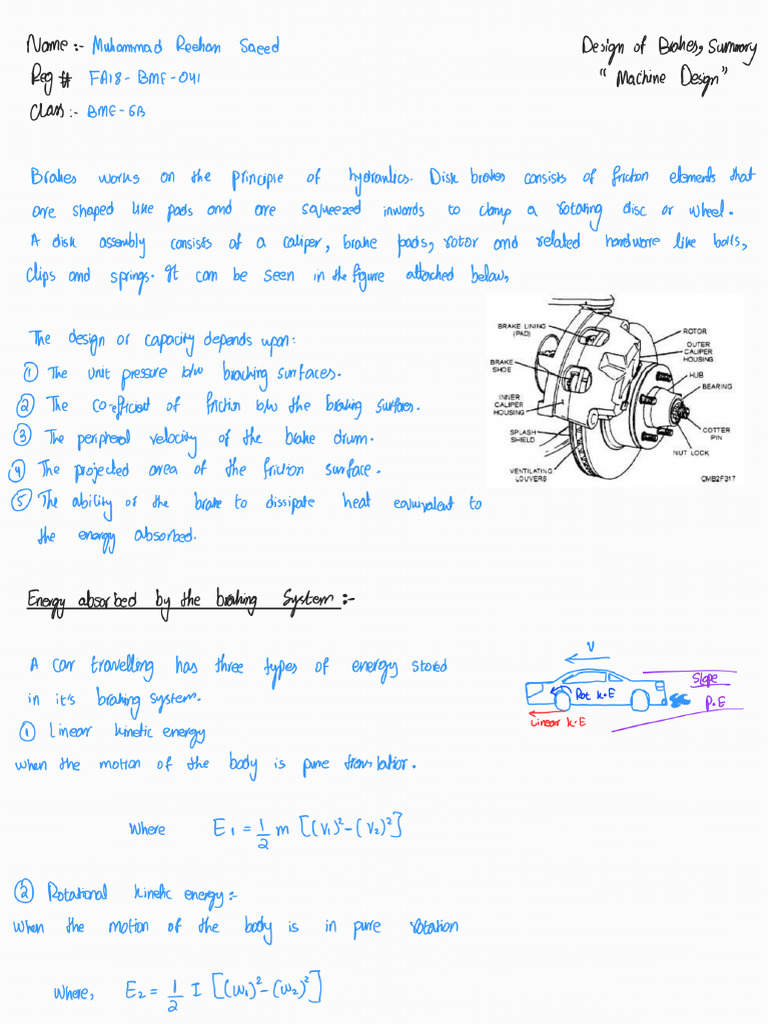 Name :- Muhammad Reehan Saeed
Reg # FA18-BME-041
Class :- BME-6B
Design of Brakes, Summary
"Machine Design"
Brakes works on the principle of hydraulics. Disk brakes consists of friction elements that
are shaped like pads and are squeezed inwards to clamp a rotating disc or wheel.
A disk assembly consists of a caliper, brake pads, rotor and related hardware like bolts,
clips and springs. It can be seen in the figure attached below,
The design or capacity depends upon:
① The unit pressure b/w braking surfaces.
② The co-efficient of friction b/w the braking surfaces.
③ The peripheral velocity of the brake drum.
④ The projected area of the friction surface.
⑤ The ability of the brake to dissipate heat equivalent to
the energy absorbed.
BRAKE LINING
(PAD)
BRAKE
SHOE
INNER
CALIPER
HOUSING
SPLASH
SHIELD
VENTILATING
LOUVERS
ROTOR
OUTER
CALIPER
HOUSING
HUB
BEARING
COTTER
PIN
NUT LOCK
CMB2F317
Energy absorbed by the braking System :-
A car travelling has three types of energy stored
in it's braking system.
① Linear kinetic energy
when the motion of the body is pure translation.
V
Rot K.E
Linear K.E
Slope
P.E
Where E₁ = 1/2 m [(V₁)² - (V₂)²]
② Rotational kinetic energy :-
when the motion of the body is in pure rotation
where, E₂ = 1/2 I [(ω₁)² - (ω₂)²]